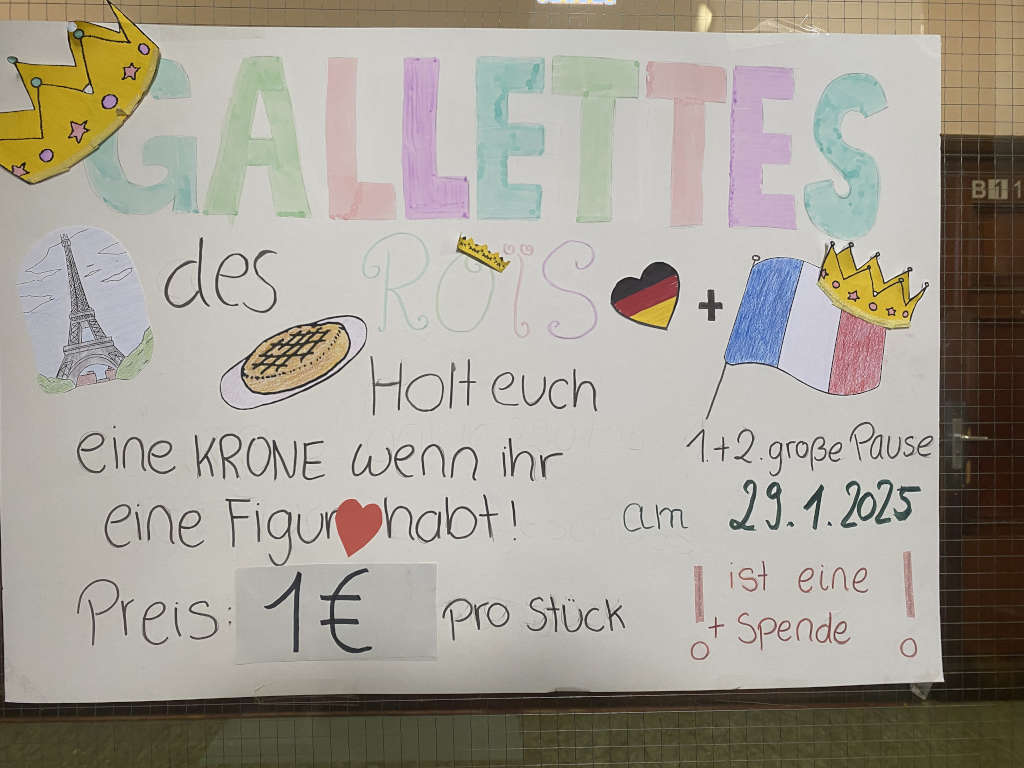 GALLETTES
des ROÏS
+
Holt euch
eine KRONE wenn ihr
eine Figur habt!
1.+2. große Pause
am 29.1.2025
Preis: 1€ pro Stück
! ist eine !
+ Spende
B11 1